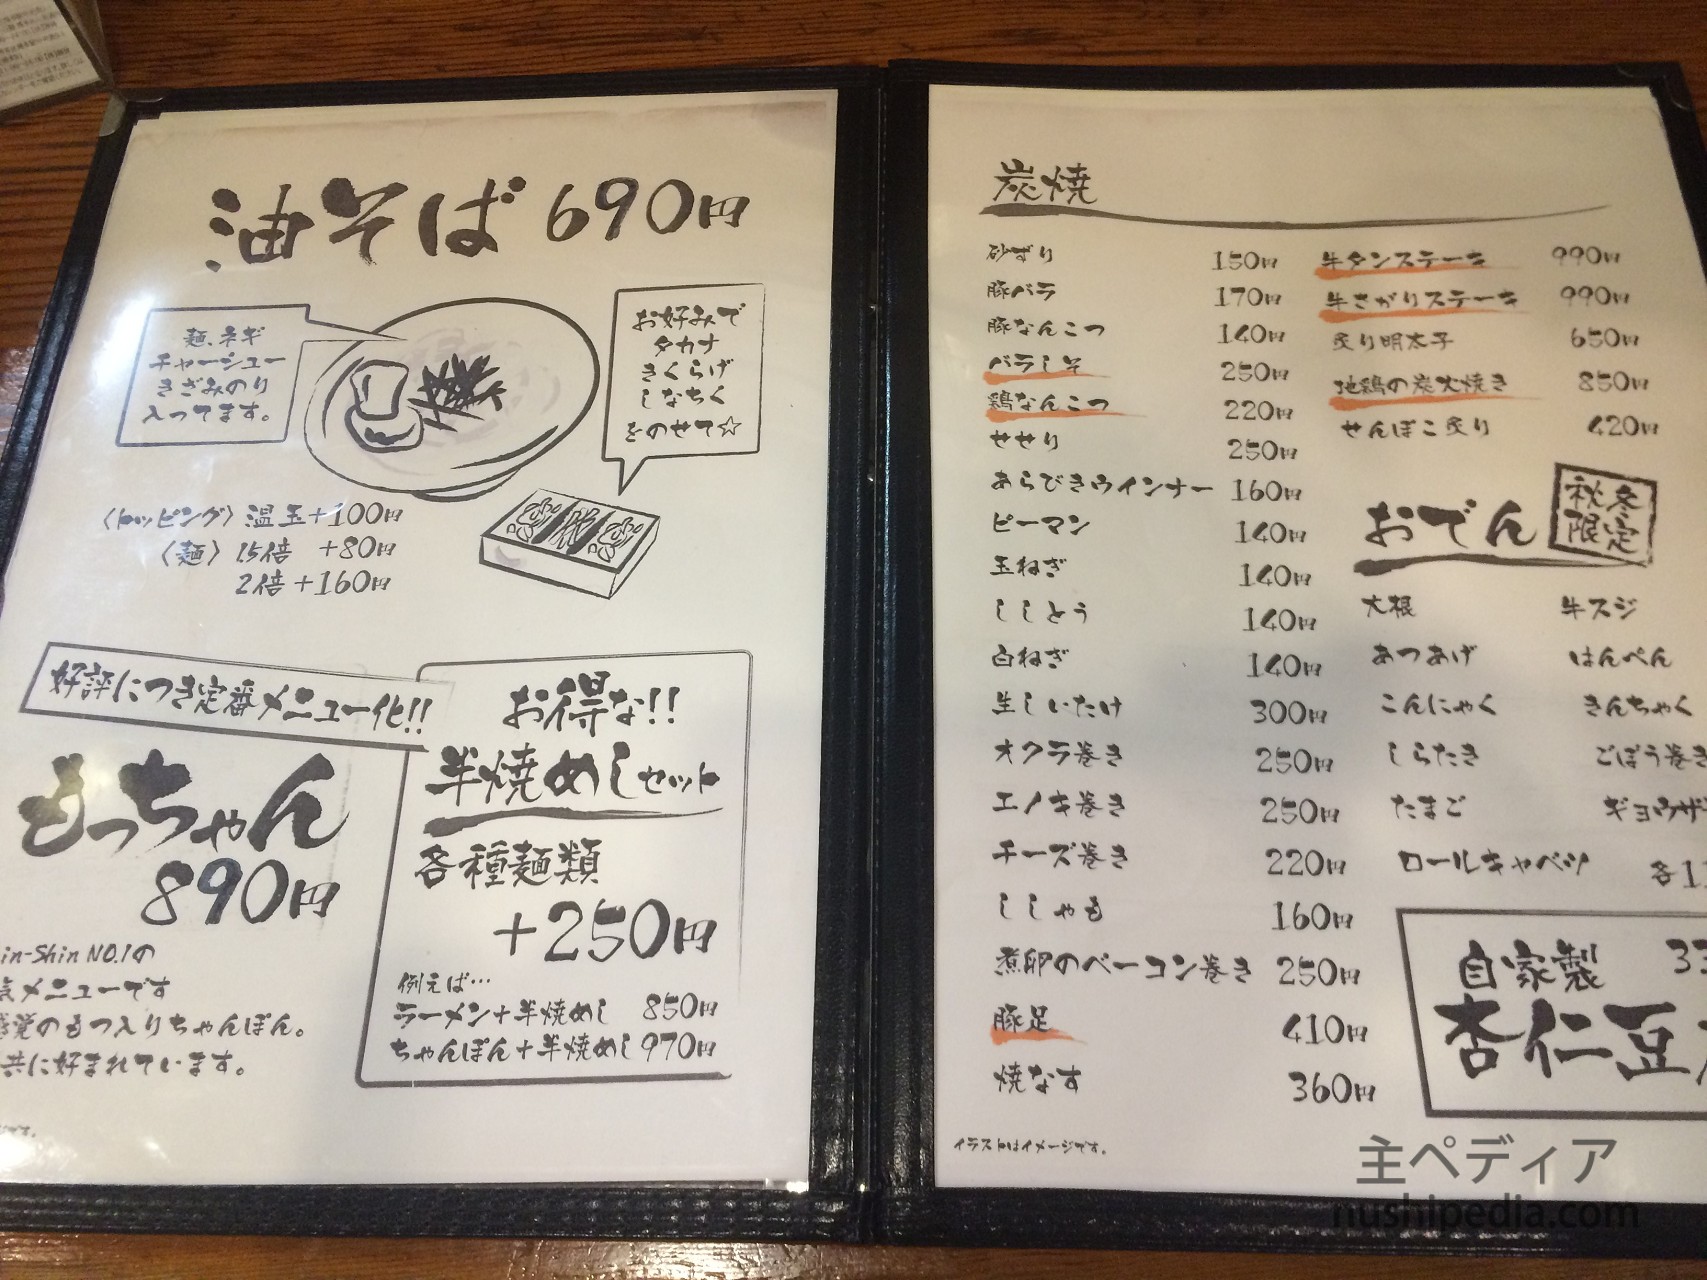 油そば 690円
麺、ネギ
チャーシュー
きざみのり
入ってます。
お好みで
タカナ
きくらげ
しなちく
をのせて☆
〈トッピング〉温玉+100円
〈麺〉1.5倍 +80円
2倍+160円
好評につき定番メニュー化!!
もっちゃん
890円
in-Shin NO.1の
気メニューです
感覚のもつ入りちゃんぽん。
共に好まれています。
お得な!!
半焼めしセット
各種麺類
+250円
例えば…
ラーメン+半焼めし 850円
ちゃんぽん+半焼めし970円
炭焼
砂ずり 150円
豚バラ 170円
豚なんこつ 140円
バラしそ 250円
鶏なんこつ 220円
せせり 250円
あらびきウインナー 160円
ピーマン 140円
玉ねぎ 140円
ししとう 140円
白ねぎ 140円
生しいたけ 300円
オクラ巻き 250円
エノキ巻き 250円
チーズ巻き 220円
ししゃも 160円
煮卵のベーコン巻き 250円
豚足 410円
焼なす 360円
イラストはイメージです。
牛タンステーキ 990円
牛さがりステーキ 990円
炙り明太子 650円
地鶏の炭火焼き 850円
せんぽこ炙り 420円
おでん
秋冬
限定
大根 牛スジ
あつあげ はんぺん
こんにゃく きんちゃく
しらたき ごぼう巻き
たまご ギョウザ
ロールキャベツ 各1
自家製 33
杏仁豆
主ペディア
nushipedia.com